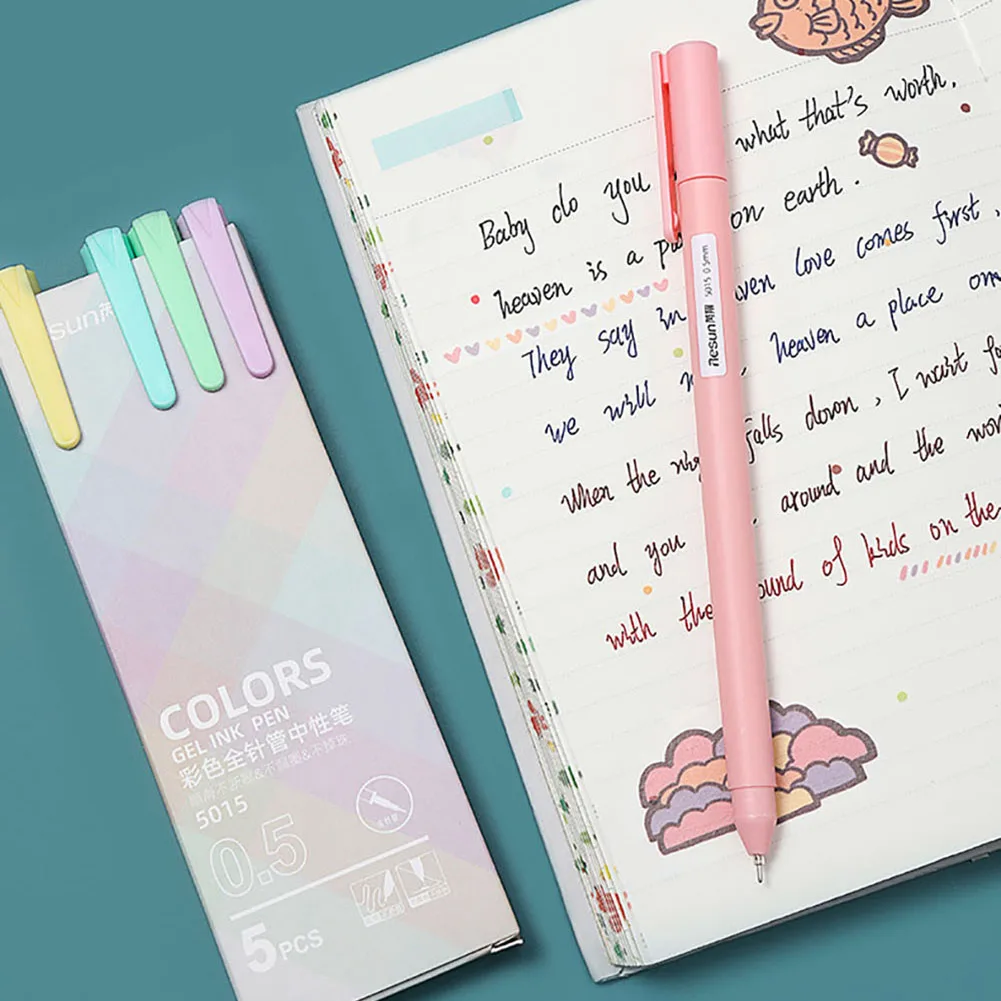 sun
COLORS
GEL INK PEN
彩色全针管中性笔
5015
0.5
5 PCS
ResUn 5015 0.5mm
what that's worth,
Baby do you on earth.
heaven is a
They say in love comes first,
we will heaven a place
When the falls down, I want
and you around and the
with the of kids on the